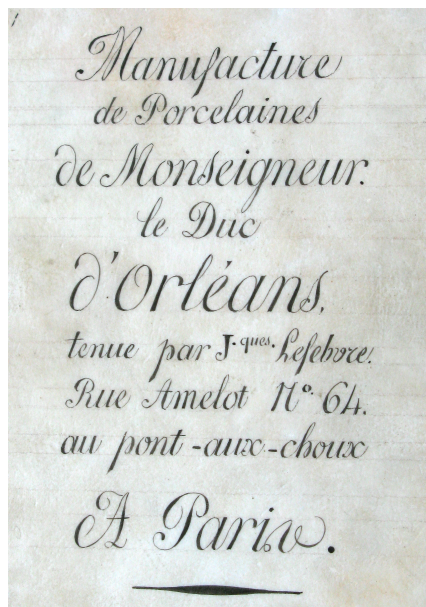 Manufacture
de Porcelaines
de Monseigneur.
le Duc
d'Orléans,
tenue par J.ques. Lefebvre.
Rue Amelot N.º 64.
au pont-aux-choux
A Paris.